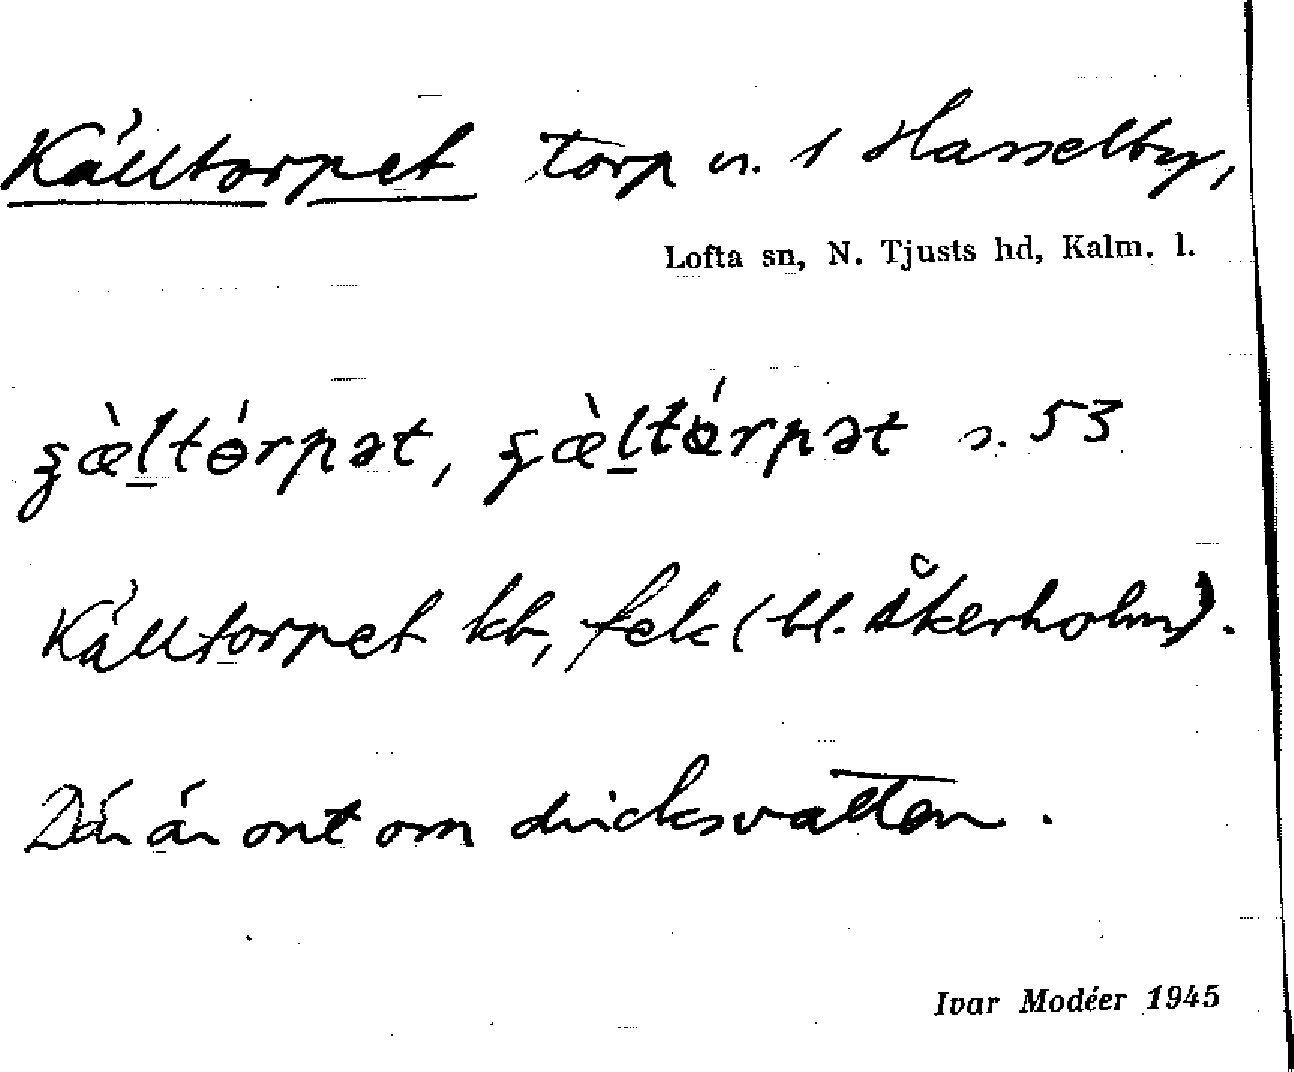 Källtorpet torp u. 1 Hasselby,
Lofta sn, N. Tjusts hd, Kalm. l.
s. 53
Källtorpet kb, fek (bl. Åkerholm).
Där är ont om dricksvatten.
Ivar Modéer 1945